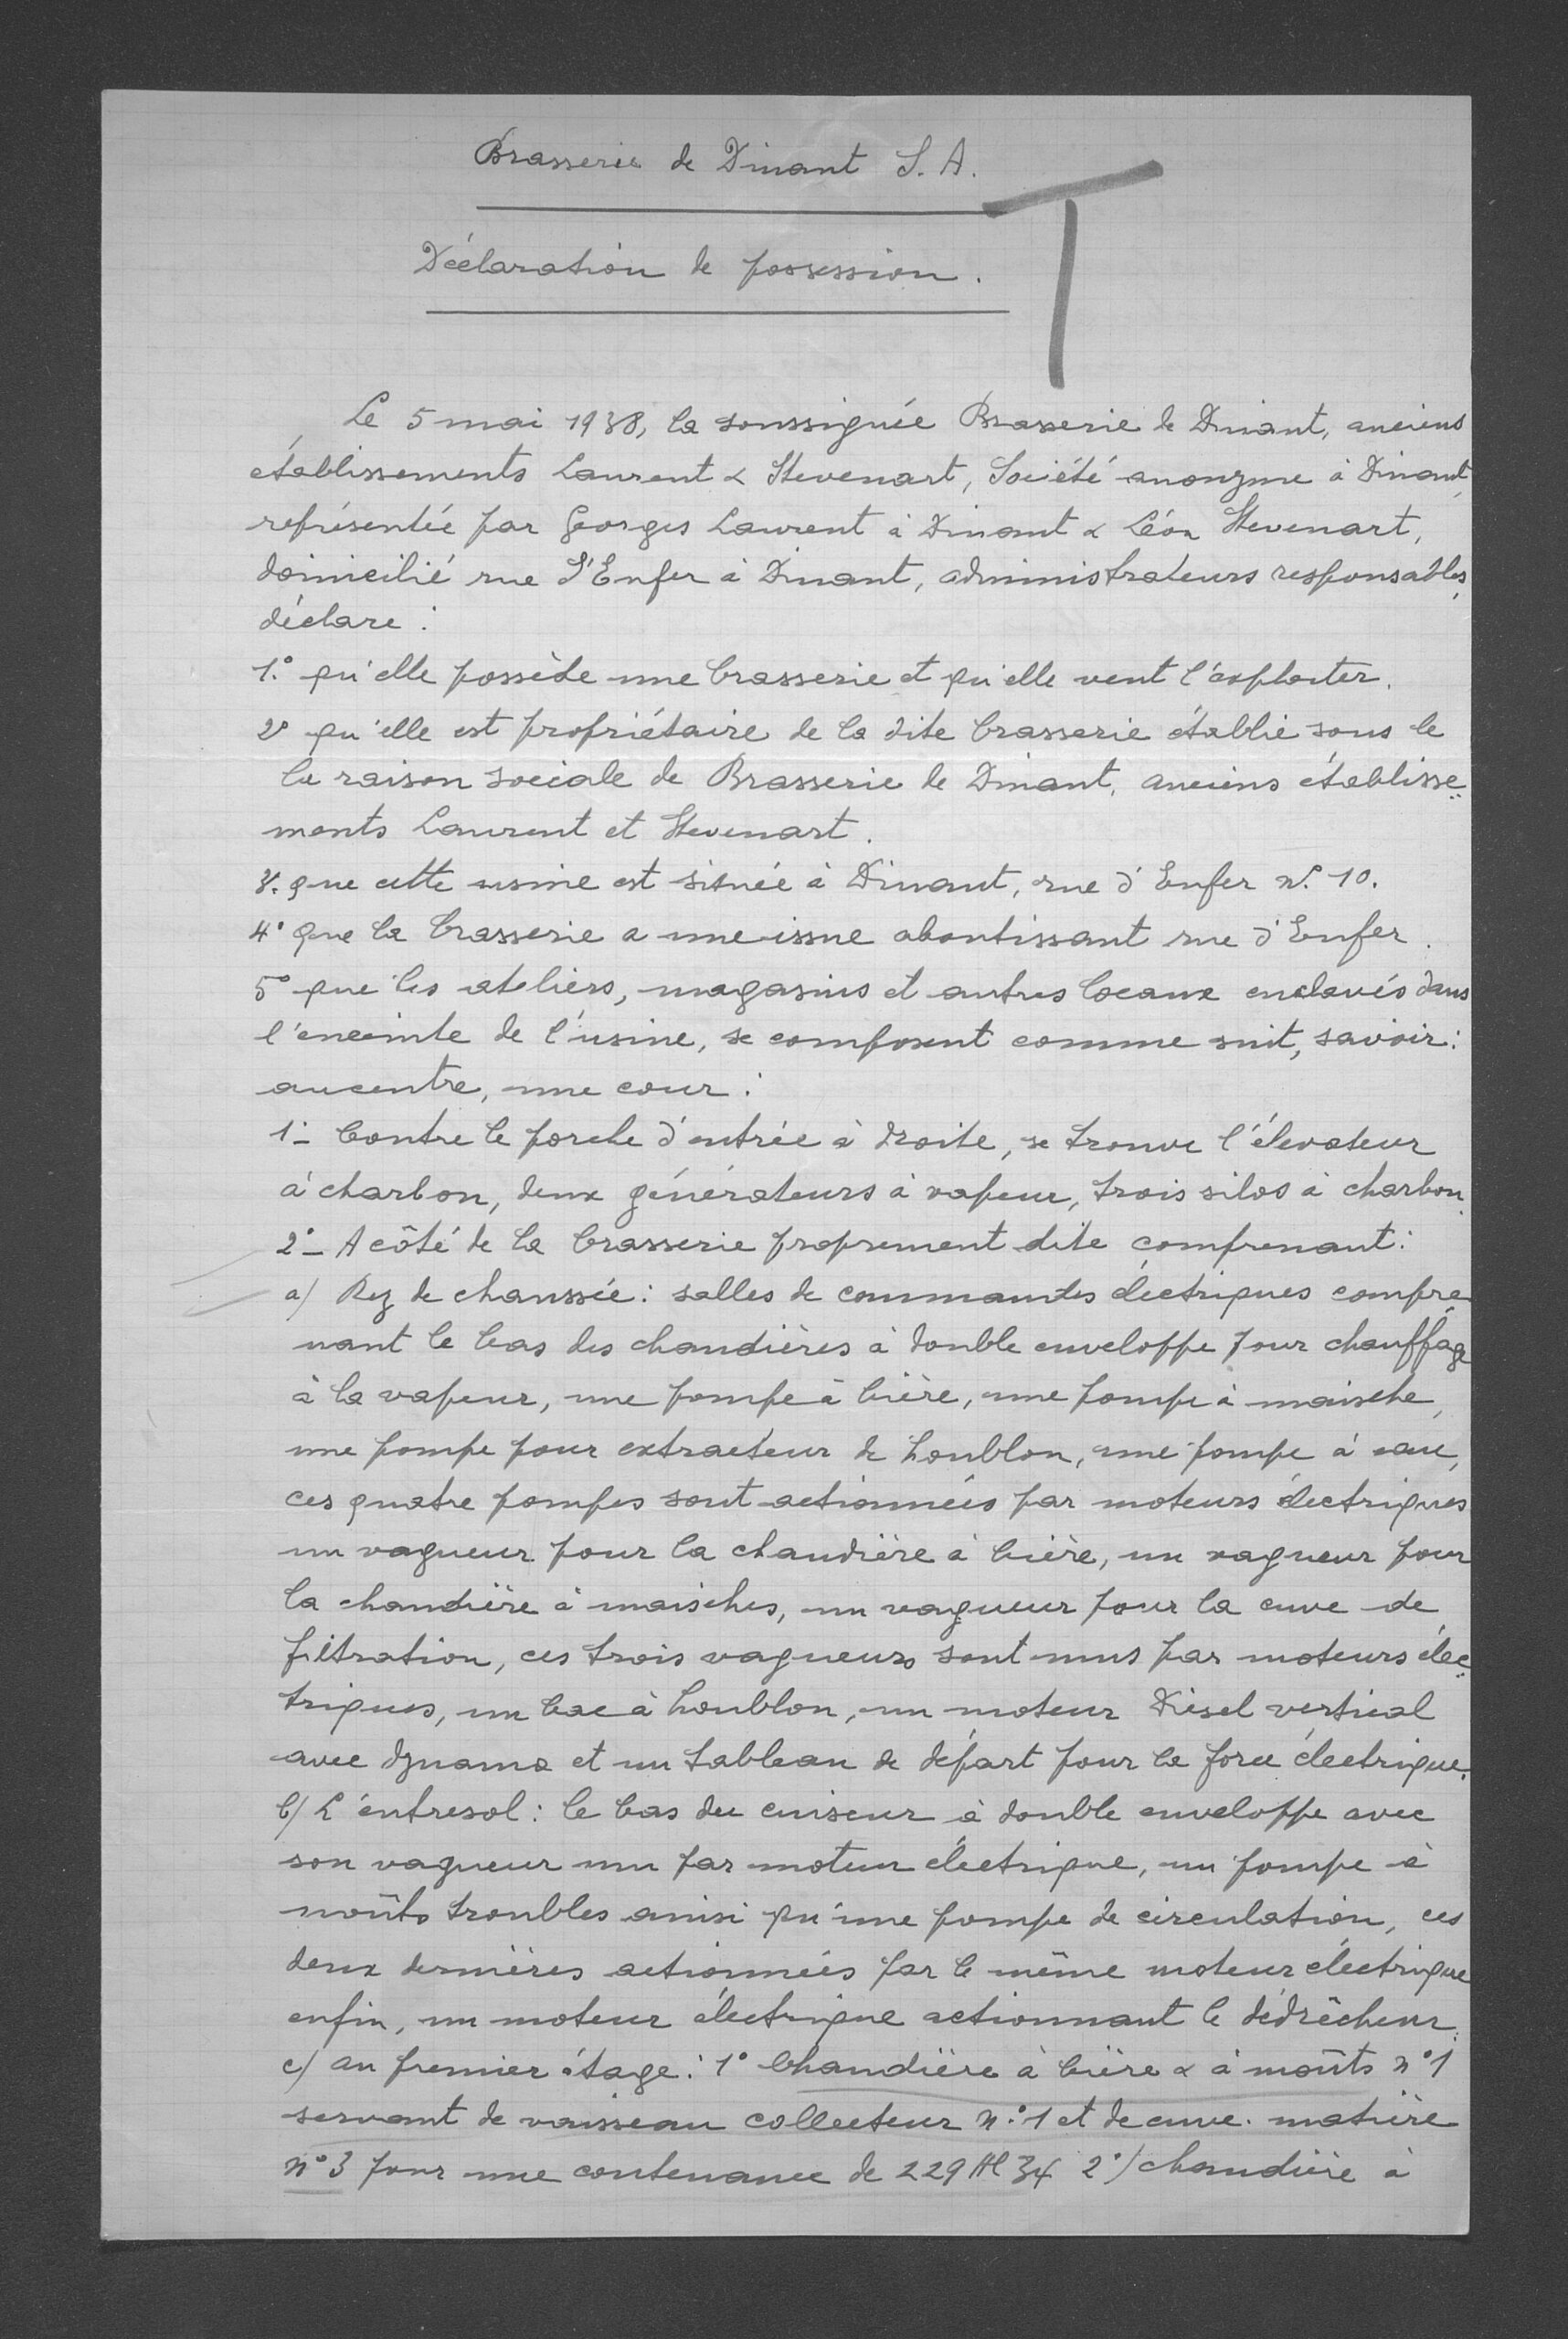 Brasserie de Dinant S. A.
T
Déclaration de possession.
Le 5 mai 1938, la soussignée Brasserie de Dinant, anciens
établissements Laurent & Stevenart, Société anonyme à Dinant,
représentée par Georges Laurent à Dinant & Léon Stevenart,
domicilié rue d'Enfer à Dinant, administrateurs responsables,
déclare :
1.° qu'elle possède une brasserie et qu'elle veut l'exploiter.
2° qu'elle est propriétaire de la dite brasserie établie sous le
la raison sociale de Brasserie de Dinant, anciens établisse
ments Laurent et Stevenart.
3°. que cette usine est située à Dinant, rue d'Enfer N.° 10.
4° que la brasserie a une issue aboutissant rue d'Enfer.
5° que les ateliers, magasins et autres locaux enclavés dans
l'enceinte de l'usine, se composent comme suit, savoir :
au centre, une cour :
1°- Contre le porche d'entrée à droite, se trouve l'élevateur
à charbon, deux générateurs à vapeur, trois silos à charbon.
2°- A côté de la brasserie proprement dite comprenant :
a/ Rez de chaussée : salles de commandes électriques compre
nant le bas des chaudières à double enveloppe pour chauffage
à la vapeur, une pompe à bière, une pompe à maische,
une pompe pour extracteur de houblon, une pompe à eau,
ces quatre pompes sont actionnées par moteurs électriques
un vagueur pour la chaudière à bière, un vagueur pour
la chaudière à maisches, un vagueur pour la cuve de
filtration, ces trois vagueurs sont mus par moteurs élec
triques, un bac à houblon, un moteur Diesel vertical
avec dynamo et un tableau de départ pour la force électrique.
b/ L'entresol : le bas du cuiseur à double enveloppe avec
son vagueur mu par moteur électrique, un pompe à
moûts troubles ainsi qu'une pompe de circulation, ces
deux dernières actionnées par le même moteur électrique
enfin, un moteur électrique actionnant le dédrêcheur.
c/ au premier étage : 1° Chaudière à bière & à moûts n° 1
servant de vaisseau collecteur n.° 1 et de cuve. matière
n° 3 pour une contenance de 229 Hl 34 2°/ chaudière à